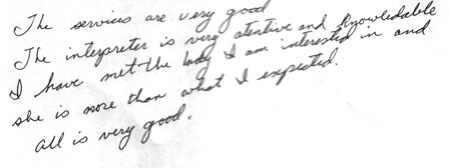 The services are very good
The interpreter is very atentive and knowledable
I have met the lady I am interested in and
she is more than what I expected.
all is very good.